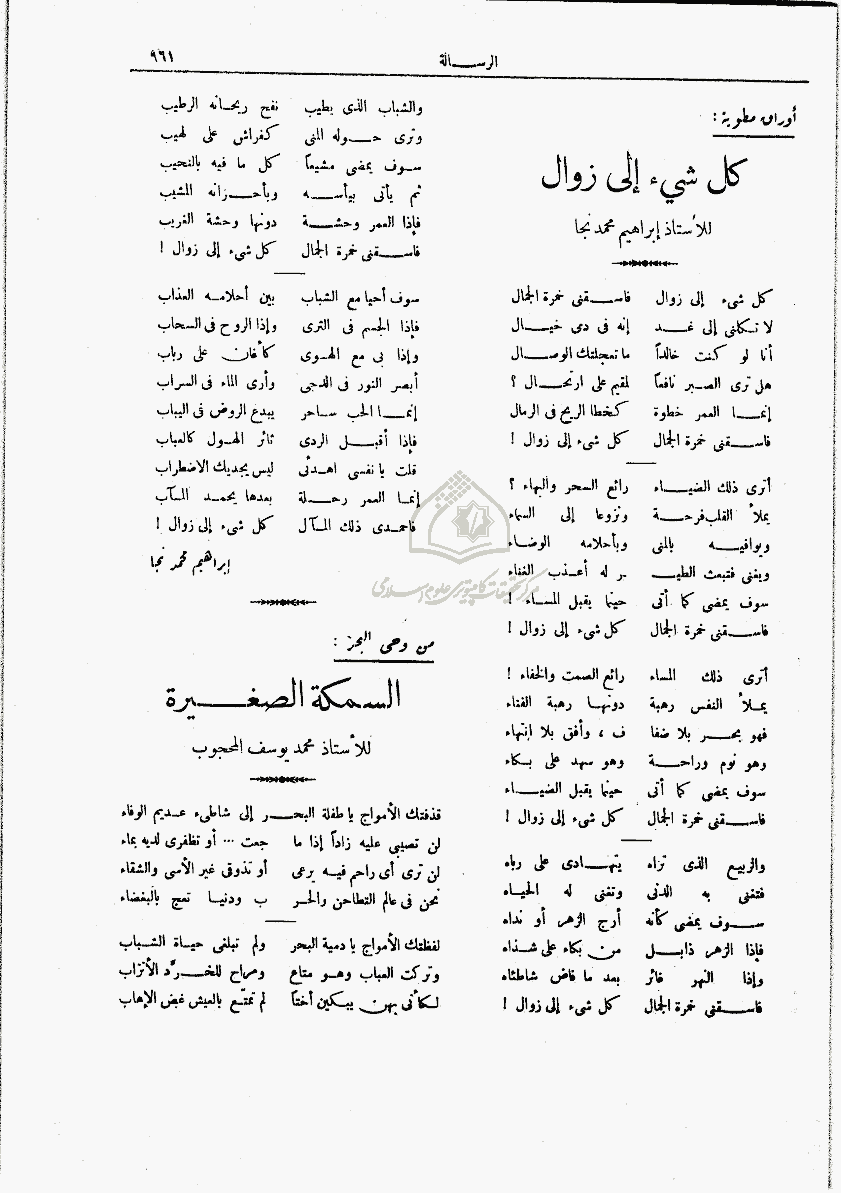 الرسالة ٩٦١
أوراق مطوية :
كل شيء إلى زوال
للأستاذ إبراهيم محمد نجا
كل شيء إلى زوال فاسقنى خمرة الجمال
لا تكلنى إلى غد إنه فى دى خيال
أنا لو كنت خالداً ما تعجلتك الوصال
هل ترى الصبر نافعاً لمقيم على ارتحال ؟
إنما العمر خطوة كخطا الريح فى الرمال
فاسقنى خمرة الجمال كل شىء إلى زوال !
أترى ذلك الضياء رائع السحر والبهاء ؟
يملأ القلب فرحة ونزوعا إلى السماء
ويوافيه بالمنى وبأحلامه الوضاء
ويغنى فتبعث الطير له أعذب الغناء
سوف يمضى كما أتى حينما يقبل المساء !
فاسقنى خمرة الجمال كل شىء إلى زوال !
أترى ذلك المساء رائع الصمت والخفاء !
يملأ النفس رهبة دونها رهبة الفناء
فهو بحر بلا ضفا ف ، وأفق بلا إنتهاء
وهو نوم وراحة وهو سهد على بكاء
سوف يمضى كما أتى حينما يقبل الضياء
فاسقنى خمرة الجمال كل شىء إلى زوال !
والربيع الذى تراه يتهادى على رباه
فتغنى به الدنى وتغنى له الحياه
سوف يمضى كأنه أرج الزهر أو نداه
فإذا الزهر ذابل من بكاء على شذاه
وإذا النهر غائر بعد ما فاض شاطئاه
فاسقنى خمرة الجمال كل شىء إلى زوال !
والشباب الذى يطيب نفح ريحانه الرطيب
وترى حوله المنى كفراش على لهيب
سوف يمضى مشيعاً كل ما فيه بالنحيب
ثم يأتى بيأسه وبأحزانه المشيب
فإذا العمر وحشة دونها وحشة الغريب
فاسقنى خمرة الجمال كل شىء إلى زوال !
سوف أحيا مع الشباب بين أحلامه العذاب
فإذا الجسم فى الثرى وإذا الروح فى السحاب
وإذا بى مع الهوى كأغان على رباب
أبصر النور فى الدجى وأرى الماء فى السراب
إنما الحب ساحر يبدع الروض فى اليباب
فإذا أقبل الردى ثائر الهول كالعباب
قلت يا نفسى اهدئى ليس يجديك الاضطراب
إنما العمر رحلة بعدها يحمد المآب
فاحمدى ذلك المآل كل شىء إلى زوال !
إبراهيم محمد نجا
من وحى البحر :
السمكة الصغيرة
للأستاذ محمد يوسف المحجوب
قذفتك الأمواج يا طفلة البحر إلى شاطىء عديم الوفاء
لن تصيبى عليه زاداً إذا ما جعت ... أو تظفرى لديه بماء
لن ترى أى راحم فيه يرعى أو تذوقى غير الأسى والشقاء
نحن فى عالم التطاحن والحر ب ودنيا تعج بالبغضاء
لفظتك الأمواج يا دمية البحر ولم تبلغى حياة الشباب
وتركت العباب وهو متاع ومراح للخرّد الأتراب
لكأنى بهن يبكين أختاً لم تمتّع بالعيش غض الإهاب
مركز تحقيقات كامپيوتری علوم اسلامی